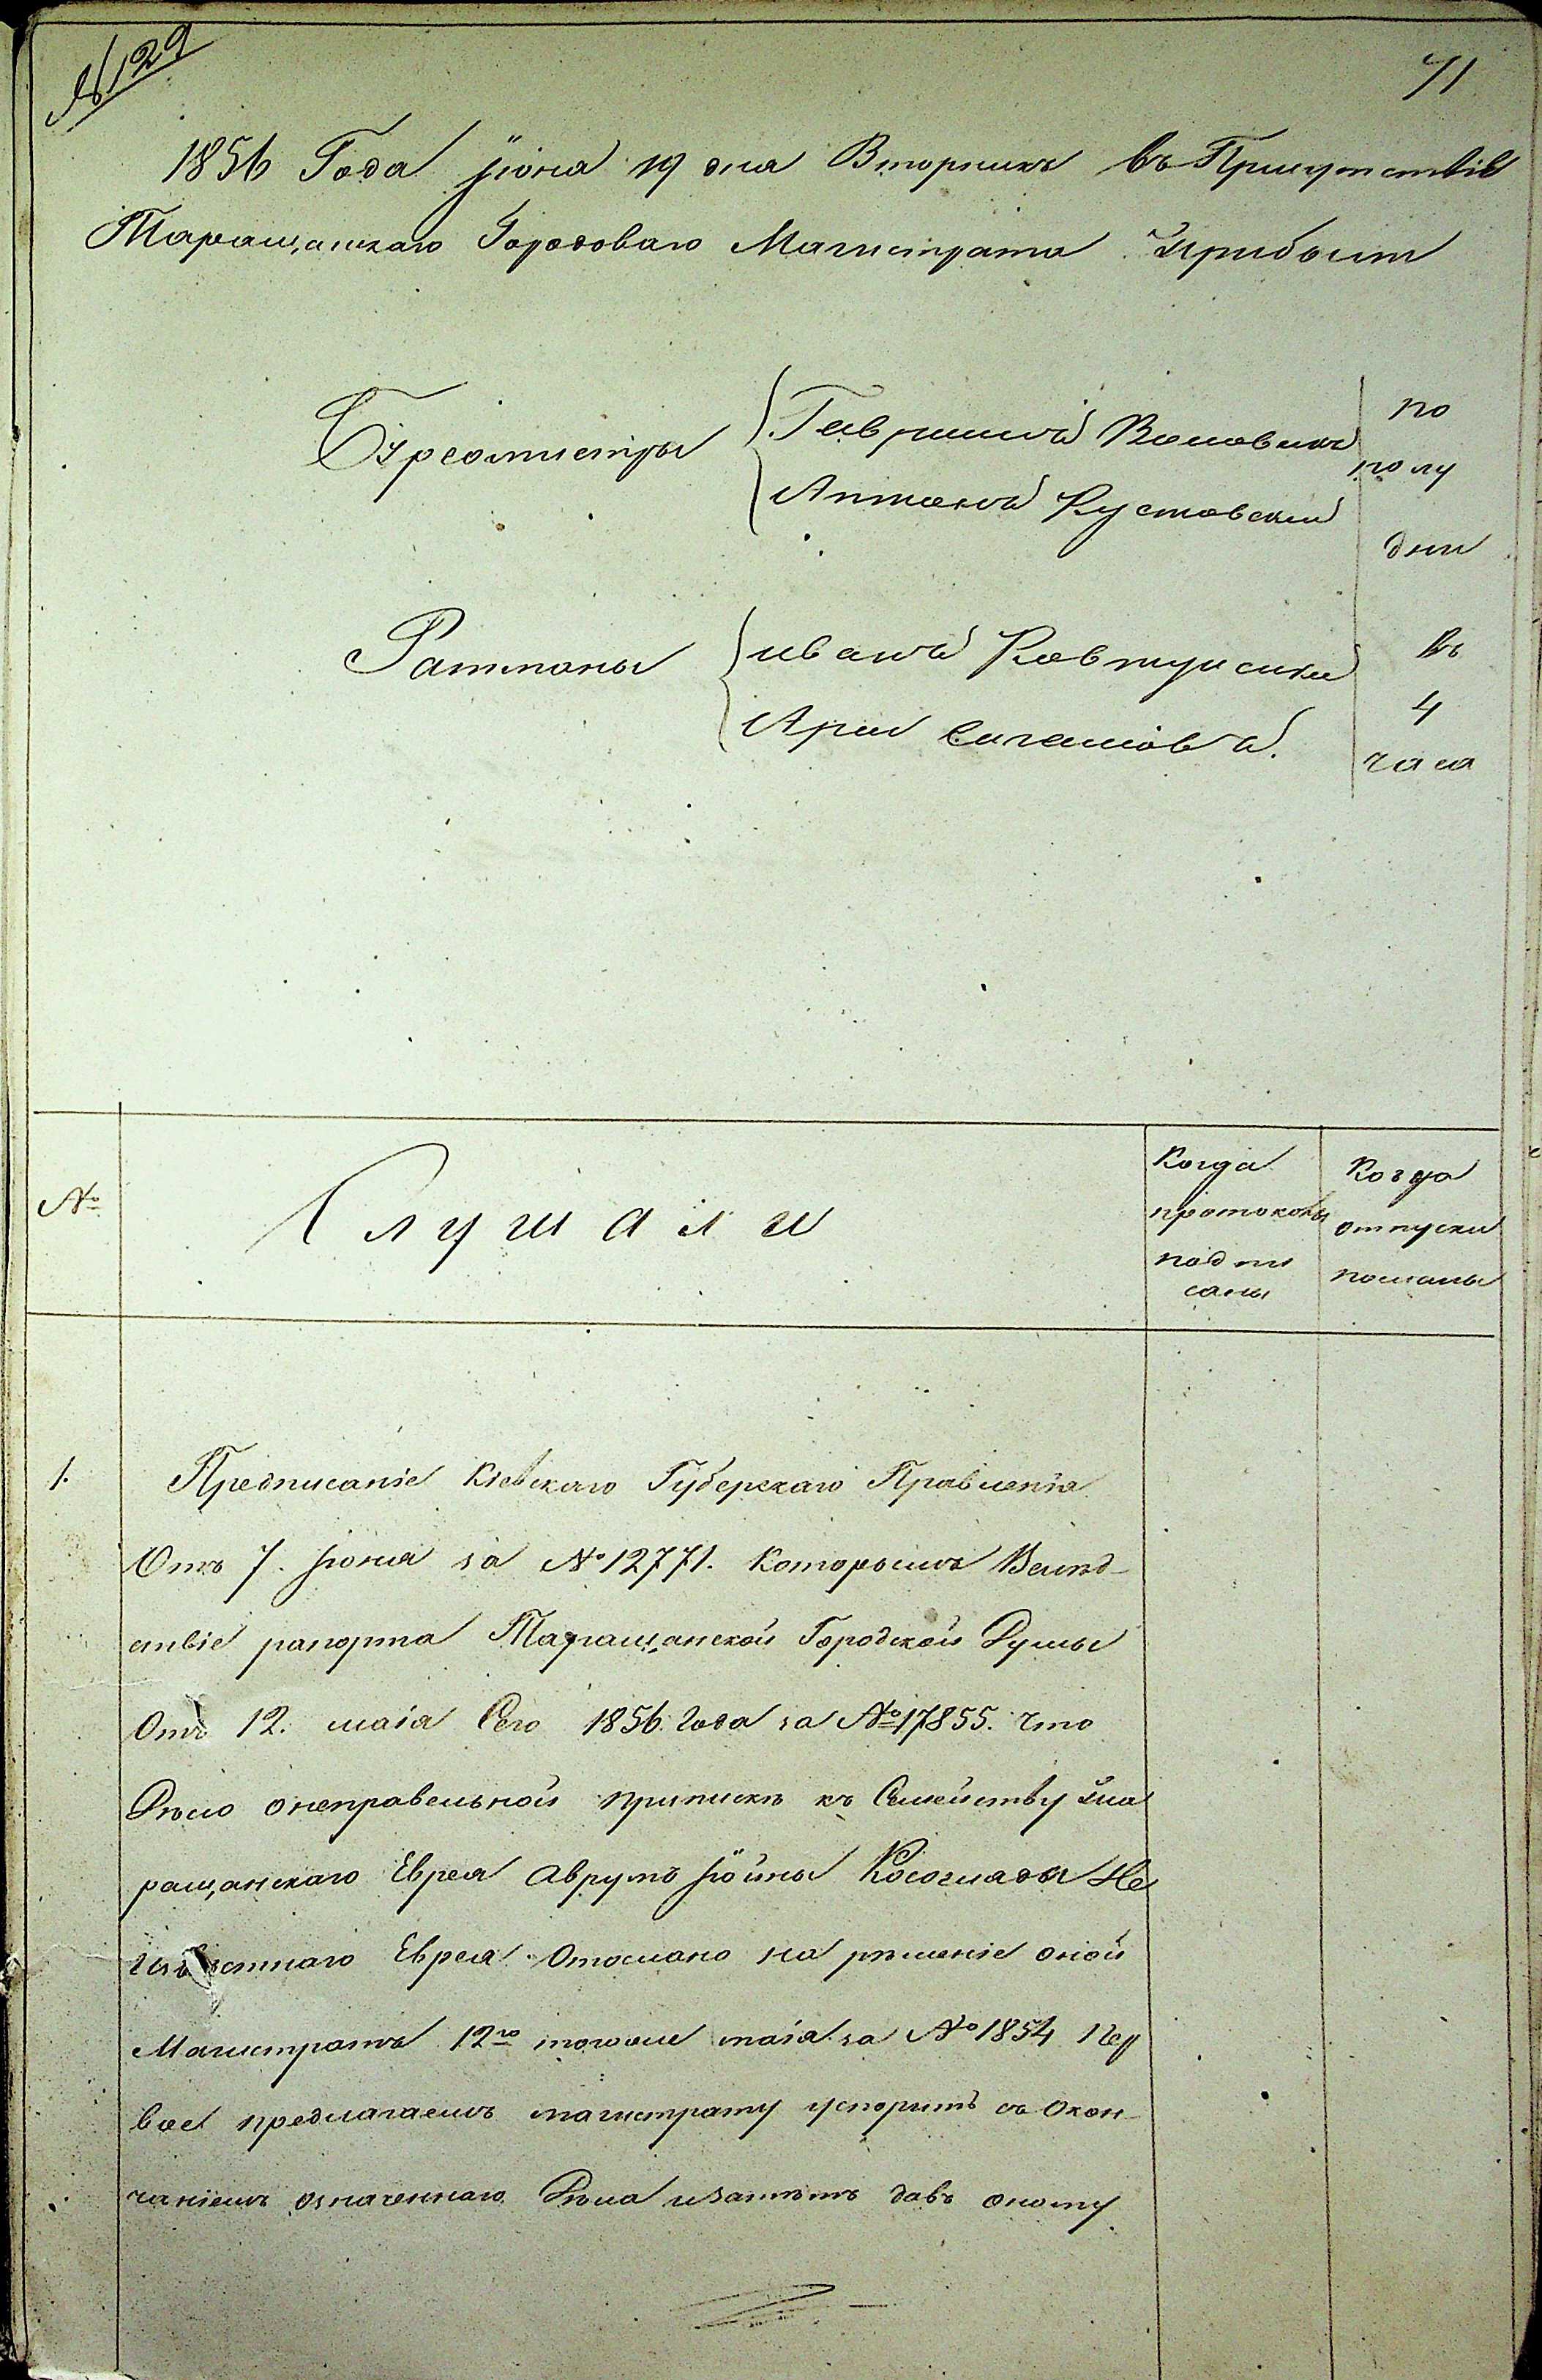 № 129
71
1856 Года Іюня 19 дня Вторникъ въ Присутствіе
Таращанскаго Городоваго Магистрата Прибыли
Бургомистры
Гавриилъ
Антонъ Кустовскій
по
полу
дни
Ратманы
иванъ Ковтуnский
Арія
въ
4
часа
№
Слушали
Когда
протоколы
подпи
саны
Когда
отпуски
посланы
1.
Предписаніе Кіевскаго Губерскаго Правленія
Отъ 7. Іюня за № 12771. Которымъ Велѣд-
ствіе рапорта Таращанской Городской Думы
Отъ 12. маія Сего 1856. Года за № 17855. что
Дѣло онеправельной припискѣ къ Семейству Та
ращанскаго Еврея Аврумъ Іойны Косогляда Не
извѣстнаго Еврея Отослано на рѣшеніе оной
Магистратъ 12го тогоже маія за № 1854
вое предлагаетъ магистрату успорить съ Окон-
чаніемъ означеннаго Дѣла изатѣмъ давъ оному